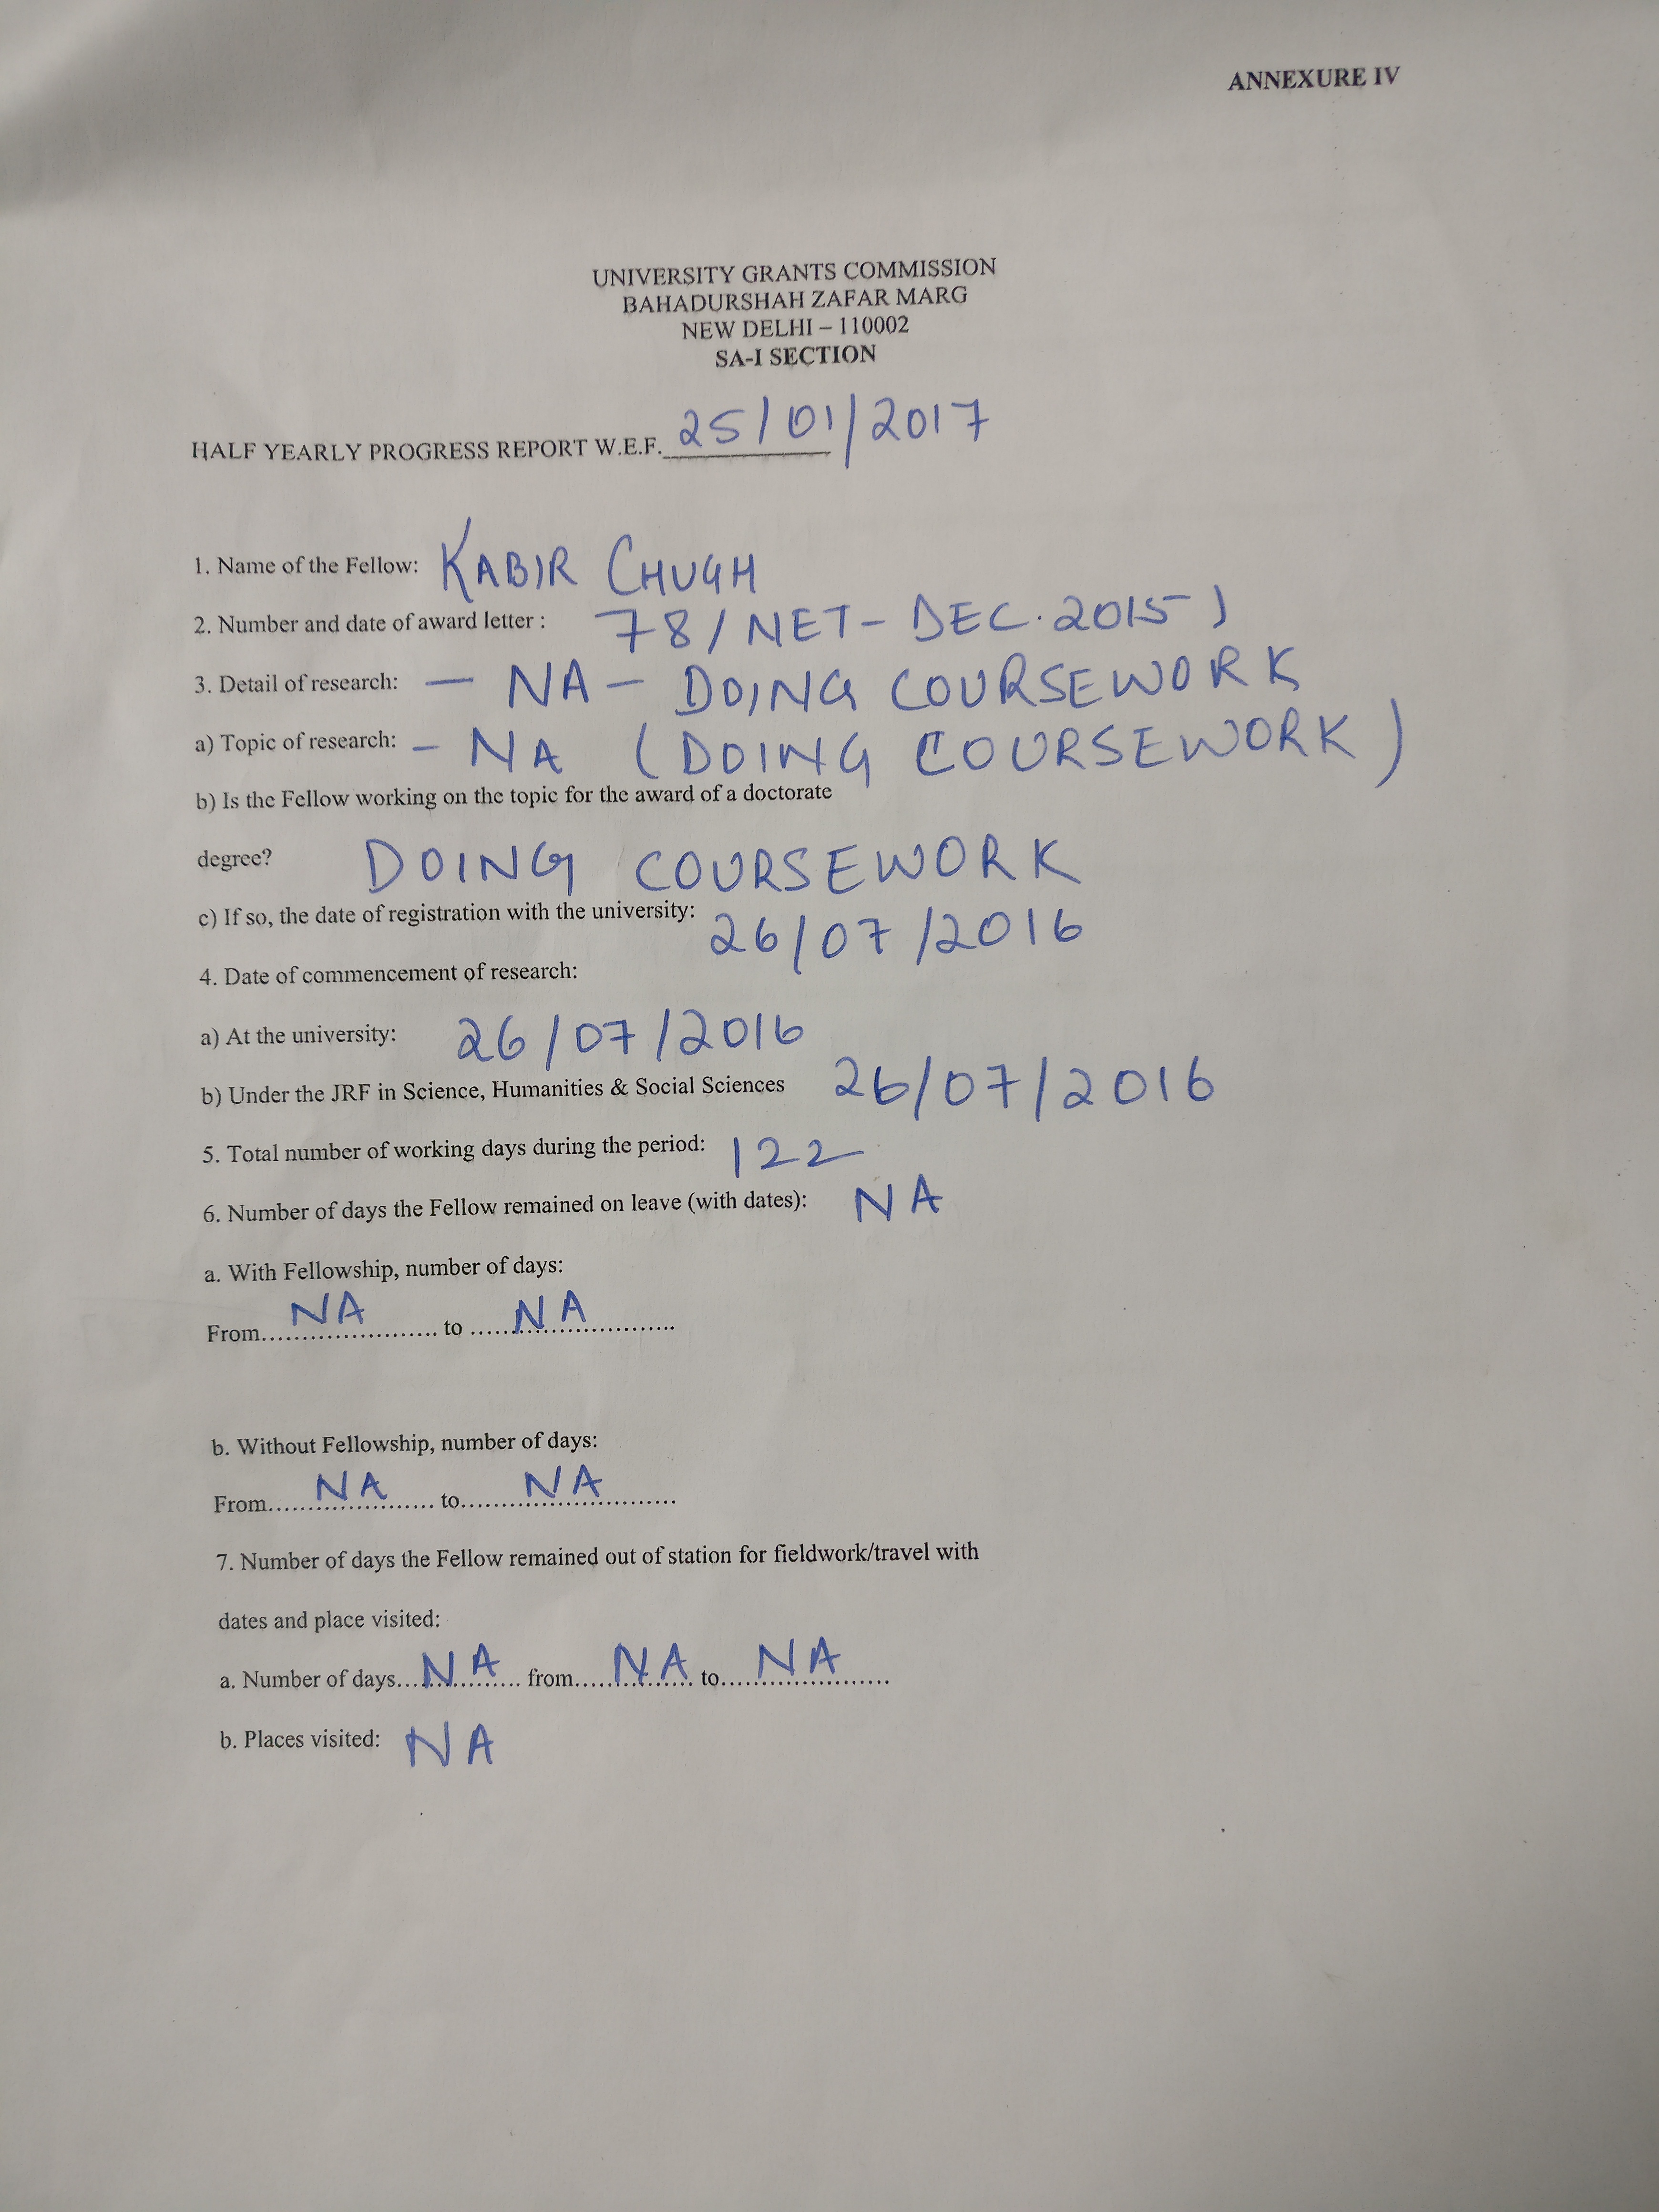 ANNEXURE IV
UNIVERSITY GRANTS COMMISSION
BAHADURSHAH ZAFAR MARG
NEW DELHI – 110002
SA-I SECTION
HALF YEARLY PROGRESS REPORT W.E.F. 25/01/2017
1. Name of the Fellow: KABIR CHUGH
2. Number and date of award letter : 78/NET-DEC.2015)
3. Detail of research: — NA — DOING COURSEWORK
a) Topic of research: — NA (DOING COURSEWORK)
b) Is the Fellow working on the topic for the award of a doctorate
degree? DOING COURSEWORK
c) If so, the date of registration with the university: 26/07/2016
4. Date of commencement of research:
a) At the university: 26/07/2016
b) Under the JRF in Science, Humanities & Social Sciences 26/07/2016
5. Total number of working days during the period: 122
6. Number of days the Fellow remained on leave (with dates): NA
a. With Fellowship, number of days:
From.....NA..... to .....NA.....
b. Without Fellowship, number of days:
From.....NA..... to.....NA.....
7. Number of days the Fellow remained out of station for fieldwork/travel with
dates and place visited:
a. Number of days...NA... from.....NA..... to.....NA.....
b. Places visited: NA